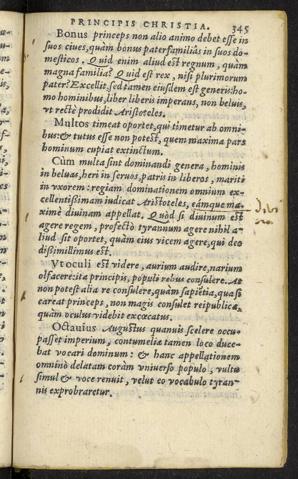 PRINCIPIS CHRISTIA. 345
Bonus princeps non alio animo debet esse in
suos ciues, quàm bonus paterfamiliâs in suos do-
mesticos. Quid enim aliud est regnum, quàm
magna familia? Quid est rex, nisi plurimorum
pater? Excellit, sed tamen eiusdem est generis: ho-
mo hominibus, liber liberis imperans, non beluis,
vt rectè prodidit Aristoteles.
Multos timeat oportet, qui timetur ab omni-
bus: & tutus esse non potest, quem maxima pars
hominum cupiat extinctum.
Cùm multa sint dominandi genera, hominis
in beluas, heri in seruos, patris in liberos, mariti
in vxorem: regiam dominationem omnium ex-
cellentissimam iudicat Aristoteles, eámque ma-
ximè diuinam appellat. Quòd si diuinum est
agere regem, profectò tyrannum agere nihil a-
liud sit oportet, quàm eius vicem agere, qui deo
dissimillimus est.
Vt oculi est videre, aurium audire, narium
olfacere: ita principis, populi rebus consulere. At
non potest alia re consulere, quàm sapiẽtia, qua si
careat princeps, non magis consulet reipublicæ,
quàm oculus videbit excæcatus.
Octauius Augustus quanuis scelere occu-
passet imperium, contumeliæ tamen loco duce-
bat vocari dominum: & hanc appellationem
omninò delatam coràm vniuerso populo, vultu
simul & voce renuit, velut eo vocabulo tyran-
nis exprobraretur.